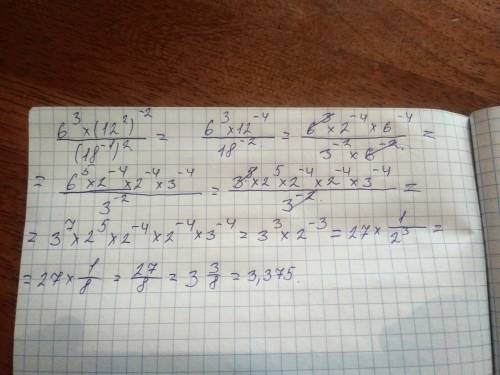 \frac{6^3 × (12^2)^{-2}}{(18^{-1})^2} = \frac{6^3 × 12^{-4}}{18^{-2}} = \frac{6^3 × 2^{-4} × 6^{-4}}{3^{-2} × 6^{-2}} =
= \frac{6^5 × 2^{-4} × 2^{-4} × 3^{-4}}{3^{-2}} = \frac{3^5 × 2^5 × 2^{-4} × 2^{-4} × 3^{-4}}{3^{-2}} =
= 3^7 × 2^5 × 2^{-4} × 2^{-4} × 3^{-4} = 3^3 × 2^{-3} = 27 × \frac{1}{2^3} =
= 27 × \frac{1}{8} = \frac{27}{8} = 3\frac{3}{8} = 3,375.